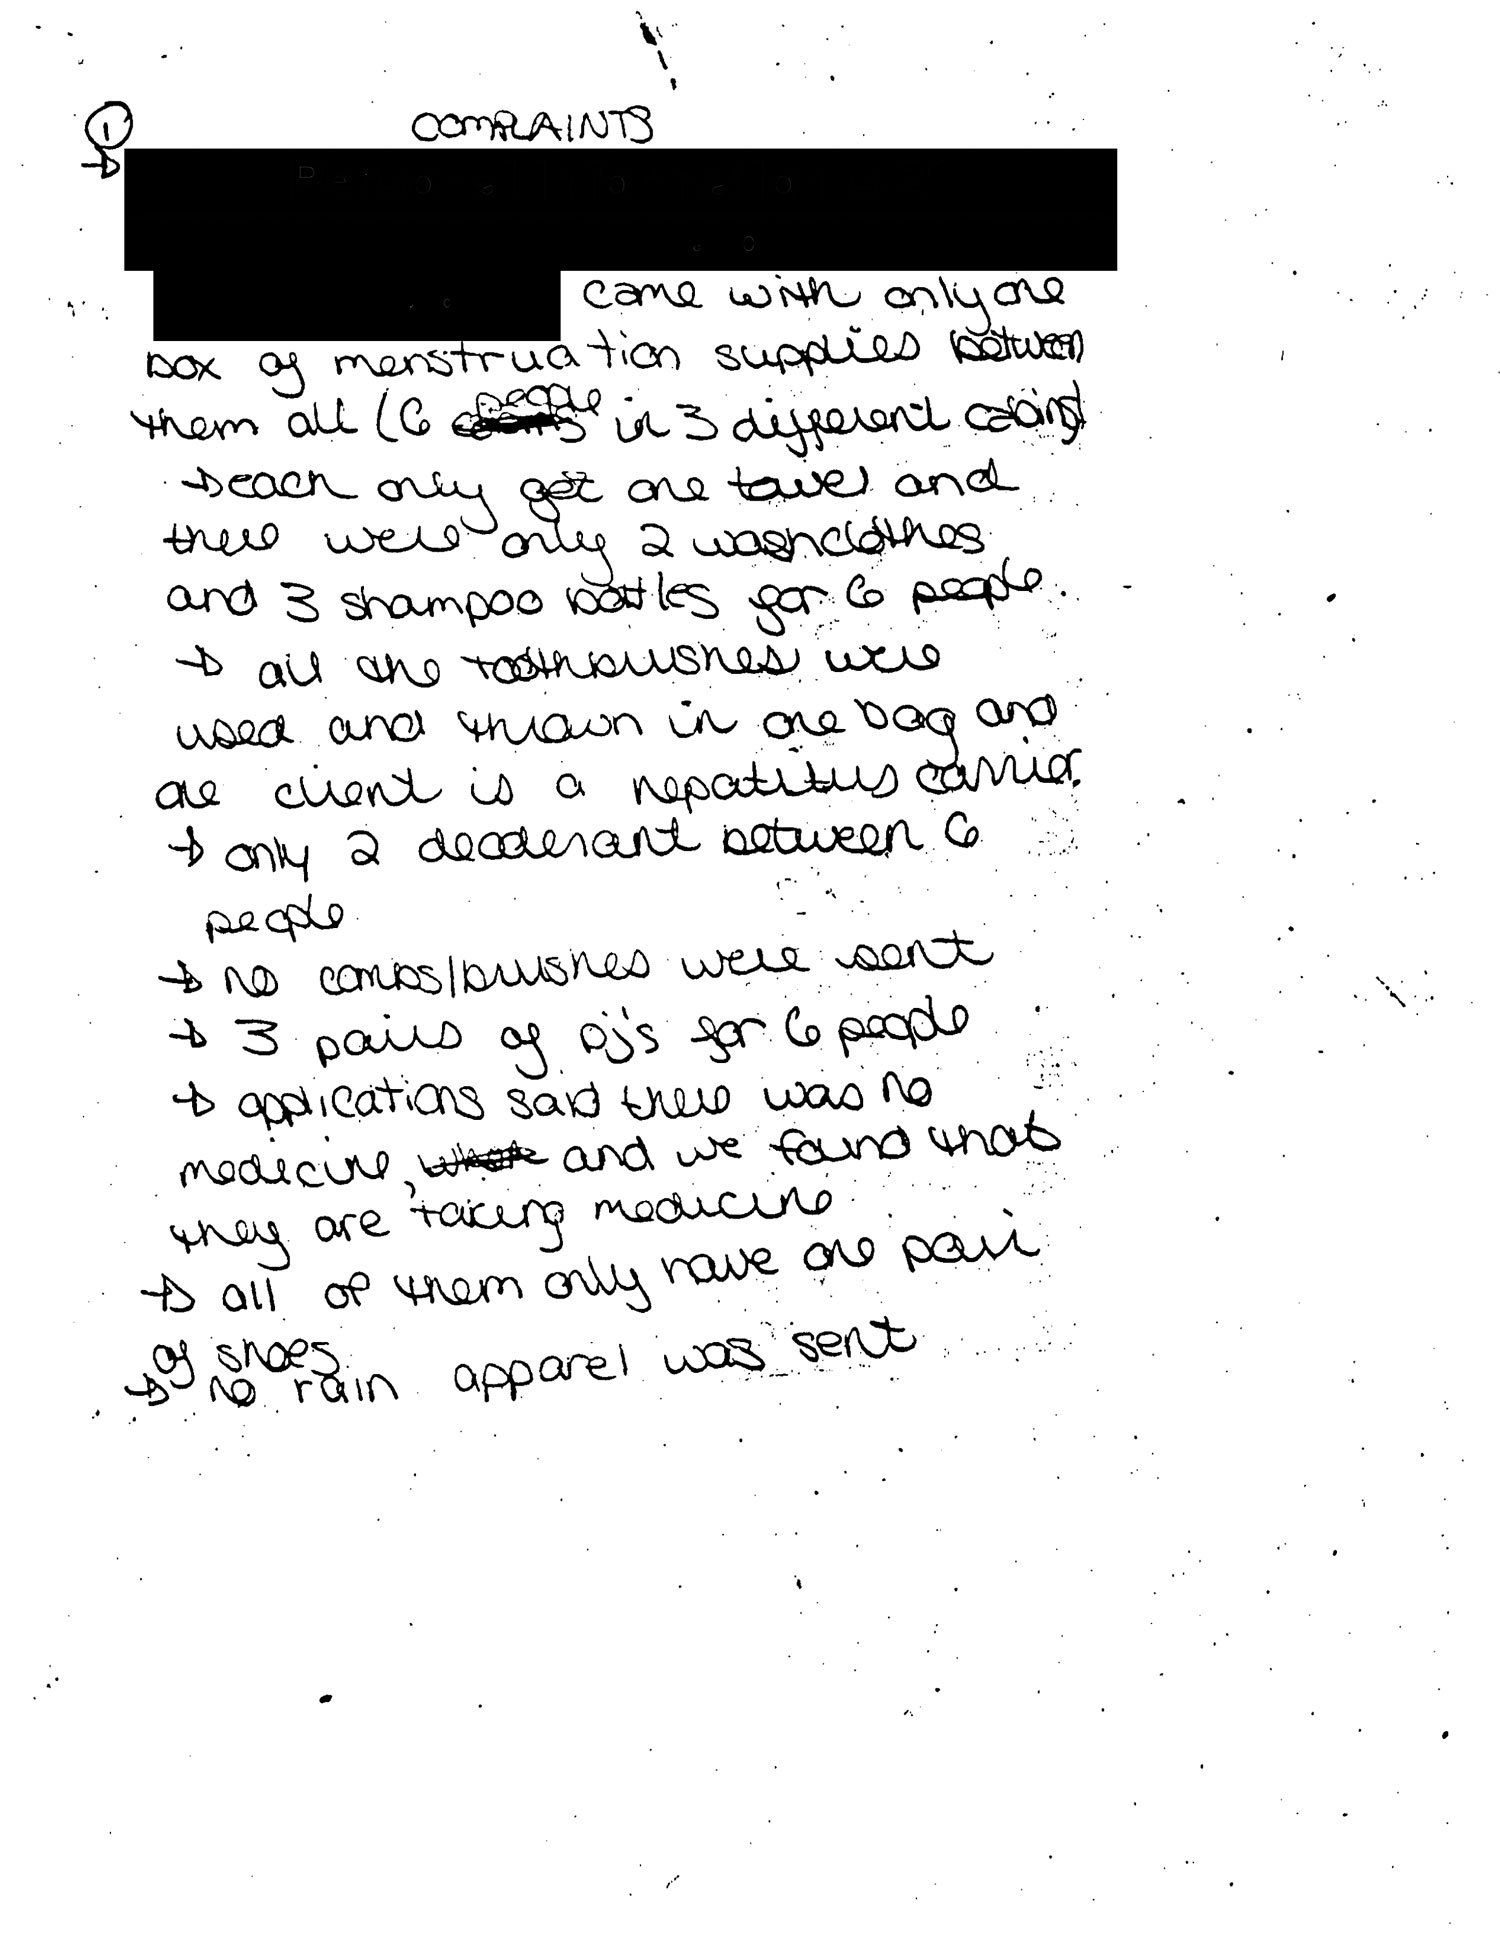 ① COMPLAINTS
→
came with only one
box of menstruation supplies between
them all (6 people in 3 different cabins)
→ each only get one towel and
there were only 2 washclothes
and 3 shampoo bottles for 6 people.
→ all the toothbrushes were
used and thrown in one bag and
one client is a hepatitus carrier.
→ only 2 deoderant between 6
people
→ no combs/brushes were sent
→ 3 pairs of pj's for 6 people
→ applications said there was no
medicine, and we found that
they are taking medicine
→ all of them only have one pair
of shoes
→ no rain apparel was sent